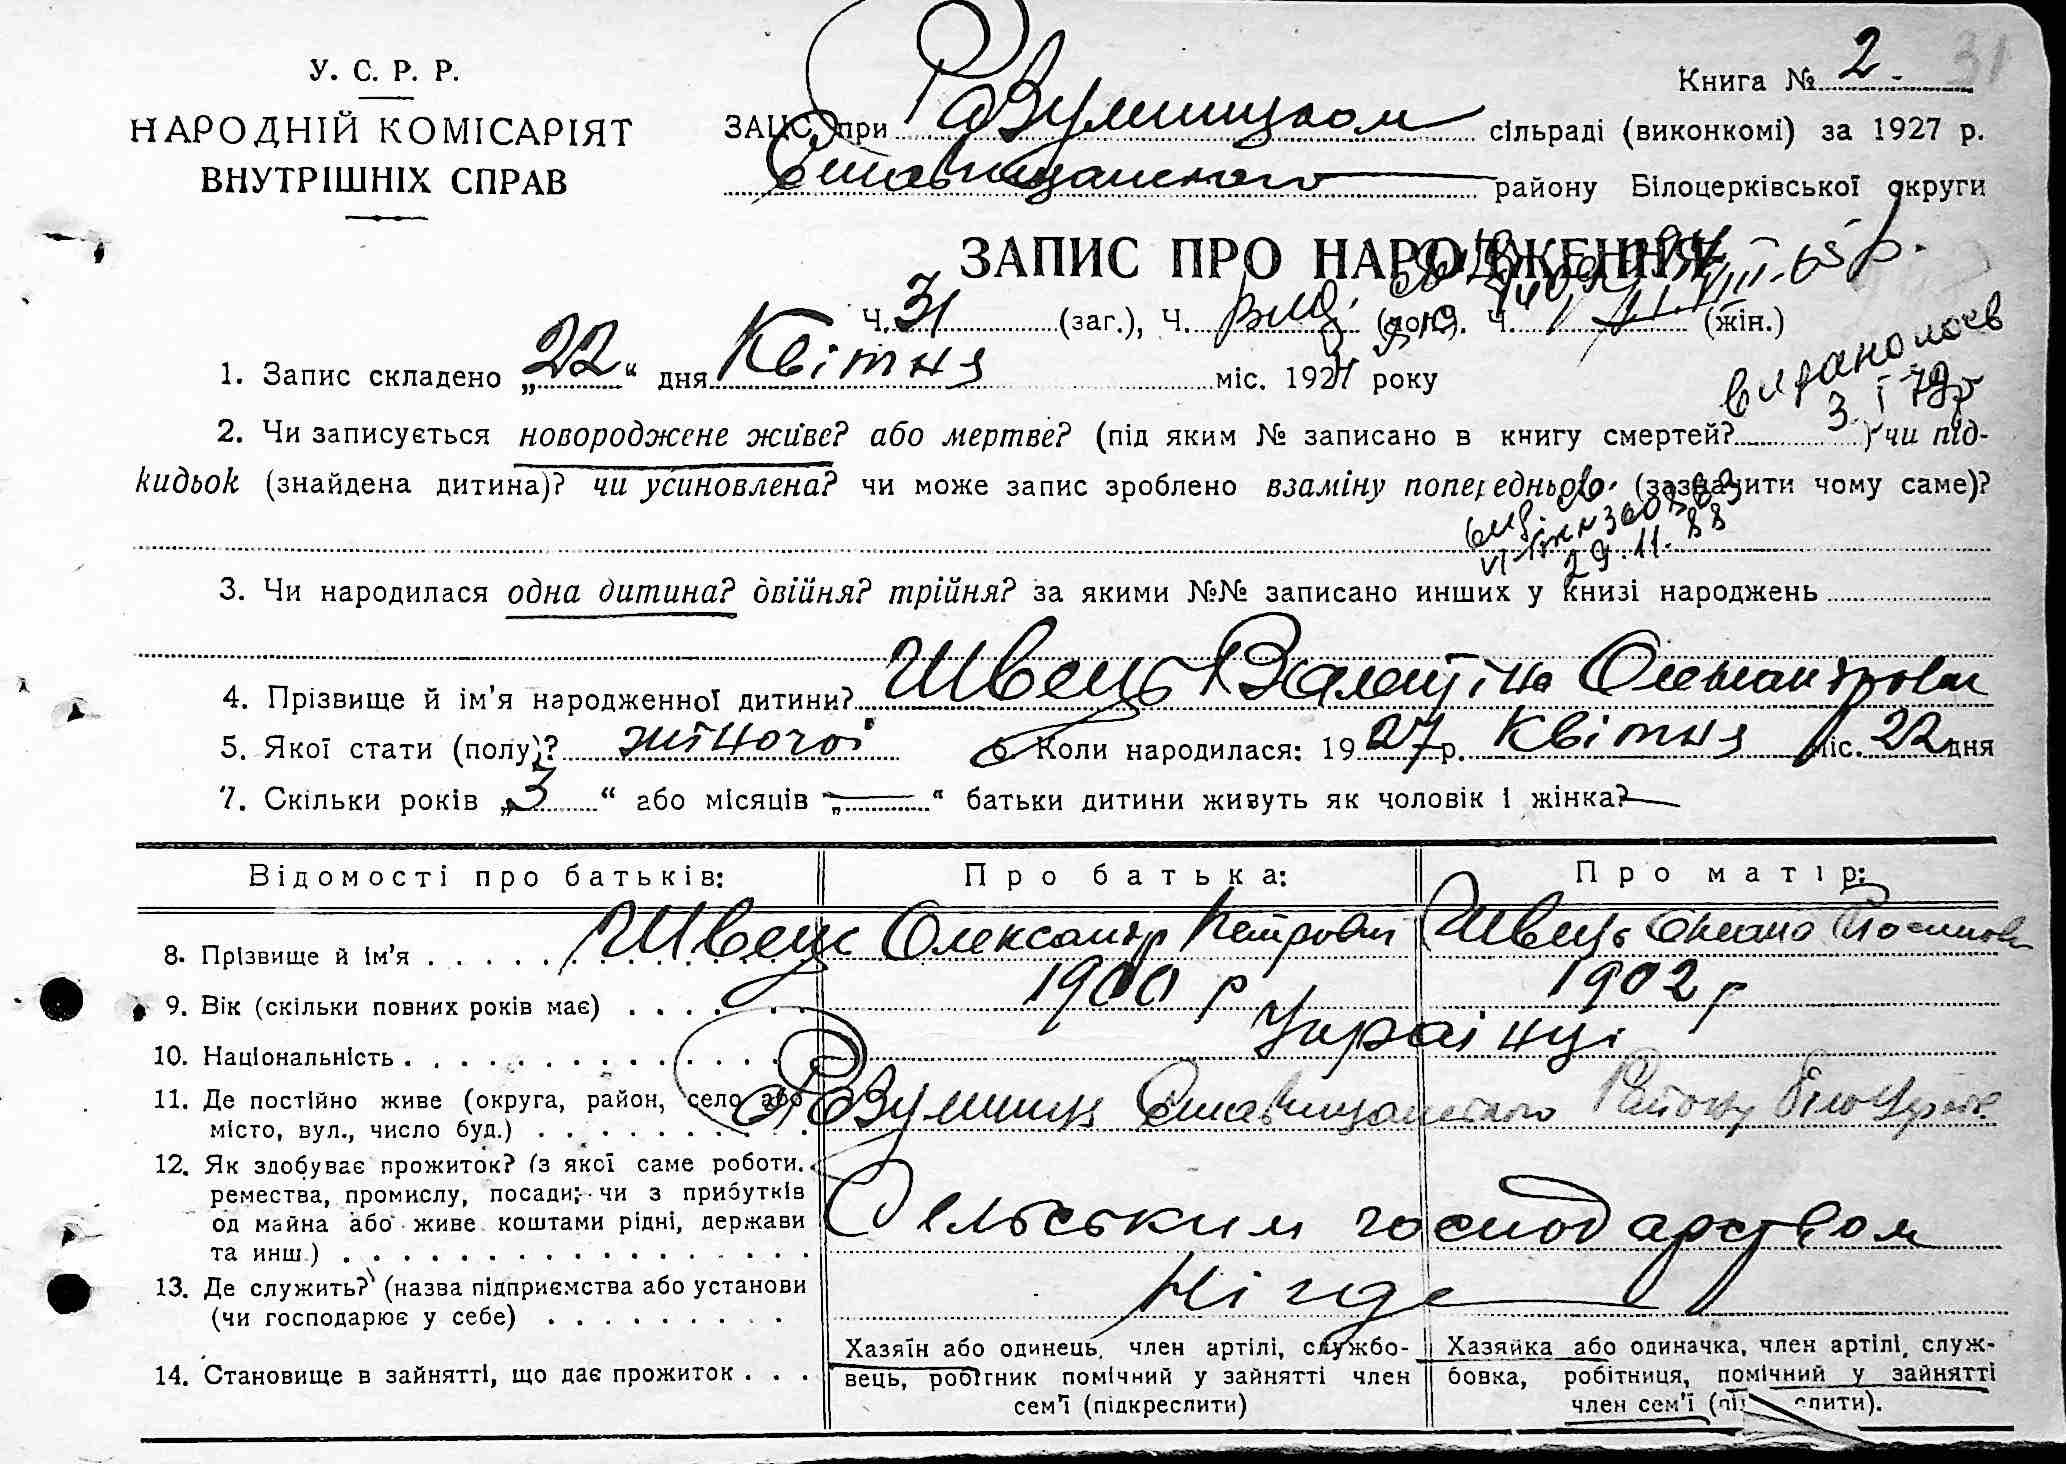 У. С. Р. Р.
НАРОДНІЙ КОМІСАРІЯТ
ВНУТРІШНІХ СПРАВ
Книга № 2 31
ЗАЦС при Розумницком сільраді (виконкомі) за 1927 р.
Ставищанського району Білоцерківської округи
ЗАПИС ПРО НАРОДЖЕННЯ
Ч. 31 (заг.), Ч. (чол.), Ч. (жін.)
1. Запис складено „22“ дня Квітня міс. 1927 року
2. Чи записується новороджене живе? або мертве? (під яким № записано в книгу смертей? ) чи під-
кидьок (знайдена дитина)? чи усиновлена? чи може запис зроблено взаміну попереднього (зазначити чому саме)?
29.11.88
3. Чи народилася одна дитина? двійня? трійня? за якими №№ записано инших у книзі народжень
4. Прізвище й ім'я народженної дитини? Швець Валентіна Олександровн
5. Якої стати (полу)? жіночої 6. Коли народилася: 1927 р. Квітня міс. 22 дня
7. Скільки років „3“ або місяців „—“ батьки дитини живуть як чоловік і жінка? —
Відомості про батьків: Про батька: Про матір:
8. Прізвище й ім'я . . . . . Швець Олександр Петрович Швець Оксана
9. Вік (скільки повних років має) . . . . 1900 р 1902 р
10. Національність . . . . . Українці
11. Де постійно живе (округа, район, село або
місто, вул., число буд.) . . . . . Розумниця Ставищанського Району Білоцерк.
12. Як здобуває прожиток? (з якої саме роботи,
ремества, промислу, посади; чи з прибутків
од майна або живе коштами рідні, держави
та инш.) . . . . . Сельським господарством
13. Де служить? (назва підприємства або установи
(чи господарює у себе) . . . . . Нігде
14. Становище в зайнятті, що дає прожиток . . .
Хазяїн або одинець, член артілі, службо-
вець, робітник помічний у зайнятті член
сем'ї (підкреслити)
Хазяйка або одиначка, член артілі, служ-
бовка, робітниця, помічний у зайнятті
член сем'ї